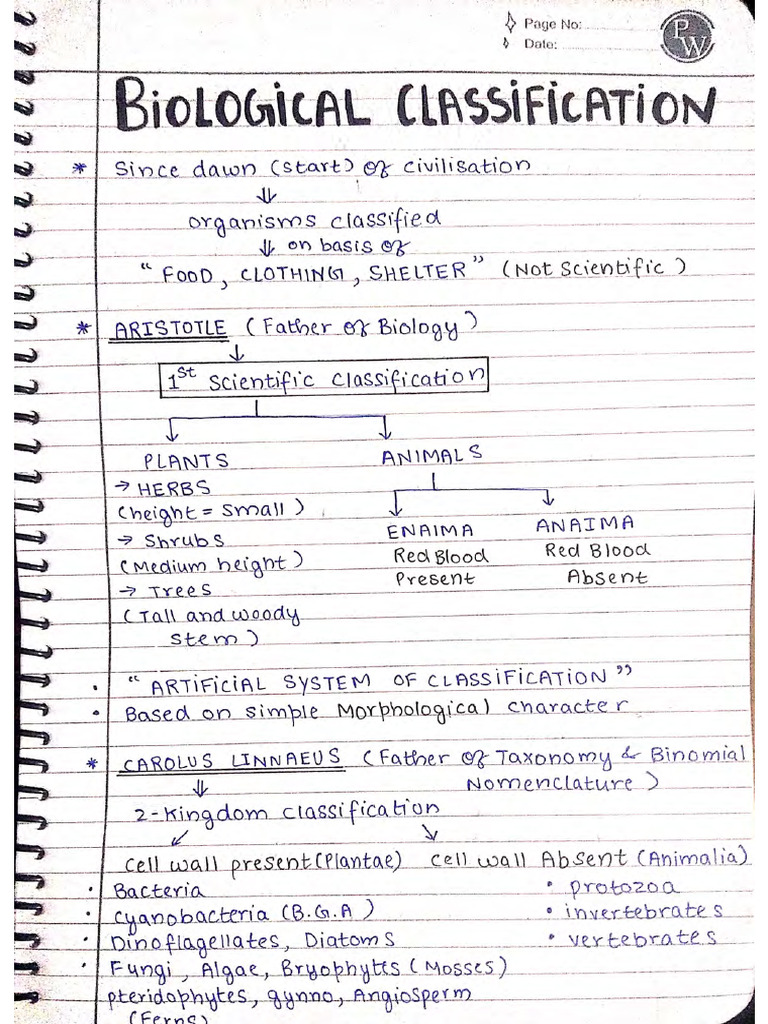 Page No:
Date:
PW
BiOLOGiCAL CLASSiFiCATiON
* Since dawn (start) of civilisation
⇓
organisms classified
⇓ on basis of
“ FOOD, CLOTHING, SHELTER ” (Not Scientific)
* ARISTOTLE (Father of Biology)
↓
1st Scientific classification
PLANTS ANIMALS
→ HERBS
(height = small)
ENAIMA ANAIMA
→ Shrubs
Red Blood Red Blood
(Medium height)
Present Absent
→ Trees
(Tall and woody
stem)
• “ ARTiFiCiAL SYSTEM OF CLASSIFICATION ”
• Based on simple Morphological character
* CAROLUS LINNAEUS (Father of Taxonomy & Binomial
Nomenclature)
⇓
2-Kingdom classification
cell wall present(Plantae) cell wall Absent (Animalia)
• Bacteria • protozoa
• cyanobacteria (B.G.A) • invertebrates
• Dinoflagellates, Diatoms • vertebrates
• Fungi, Algae, Bryophytes (Mosses)
pteridophytes, gynno, Angiosperm
(Ferns)